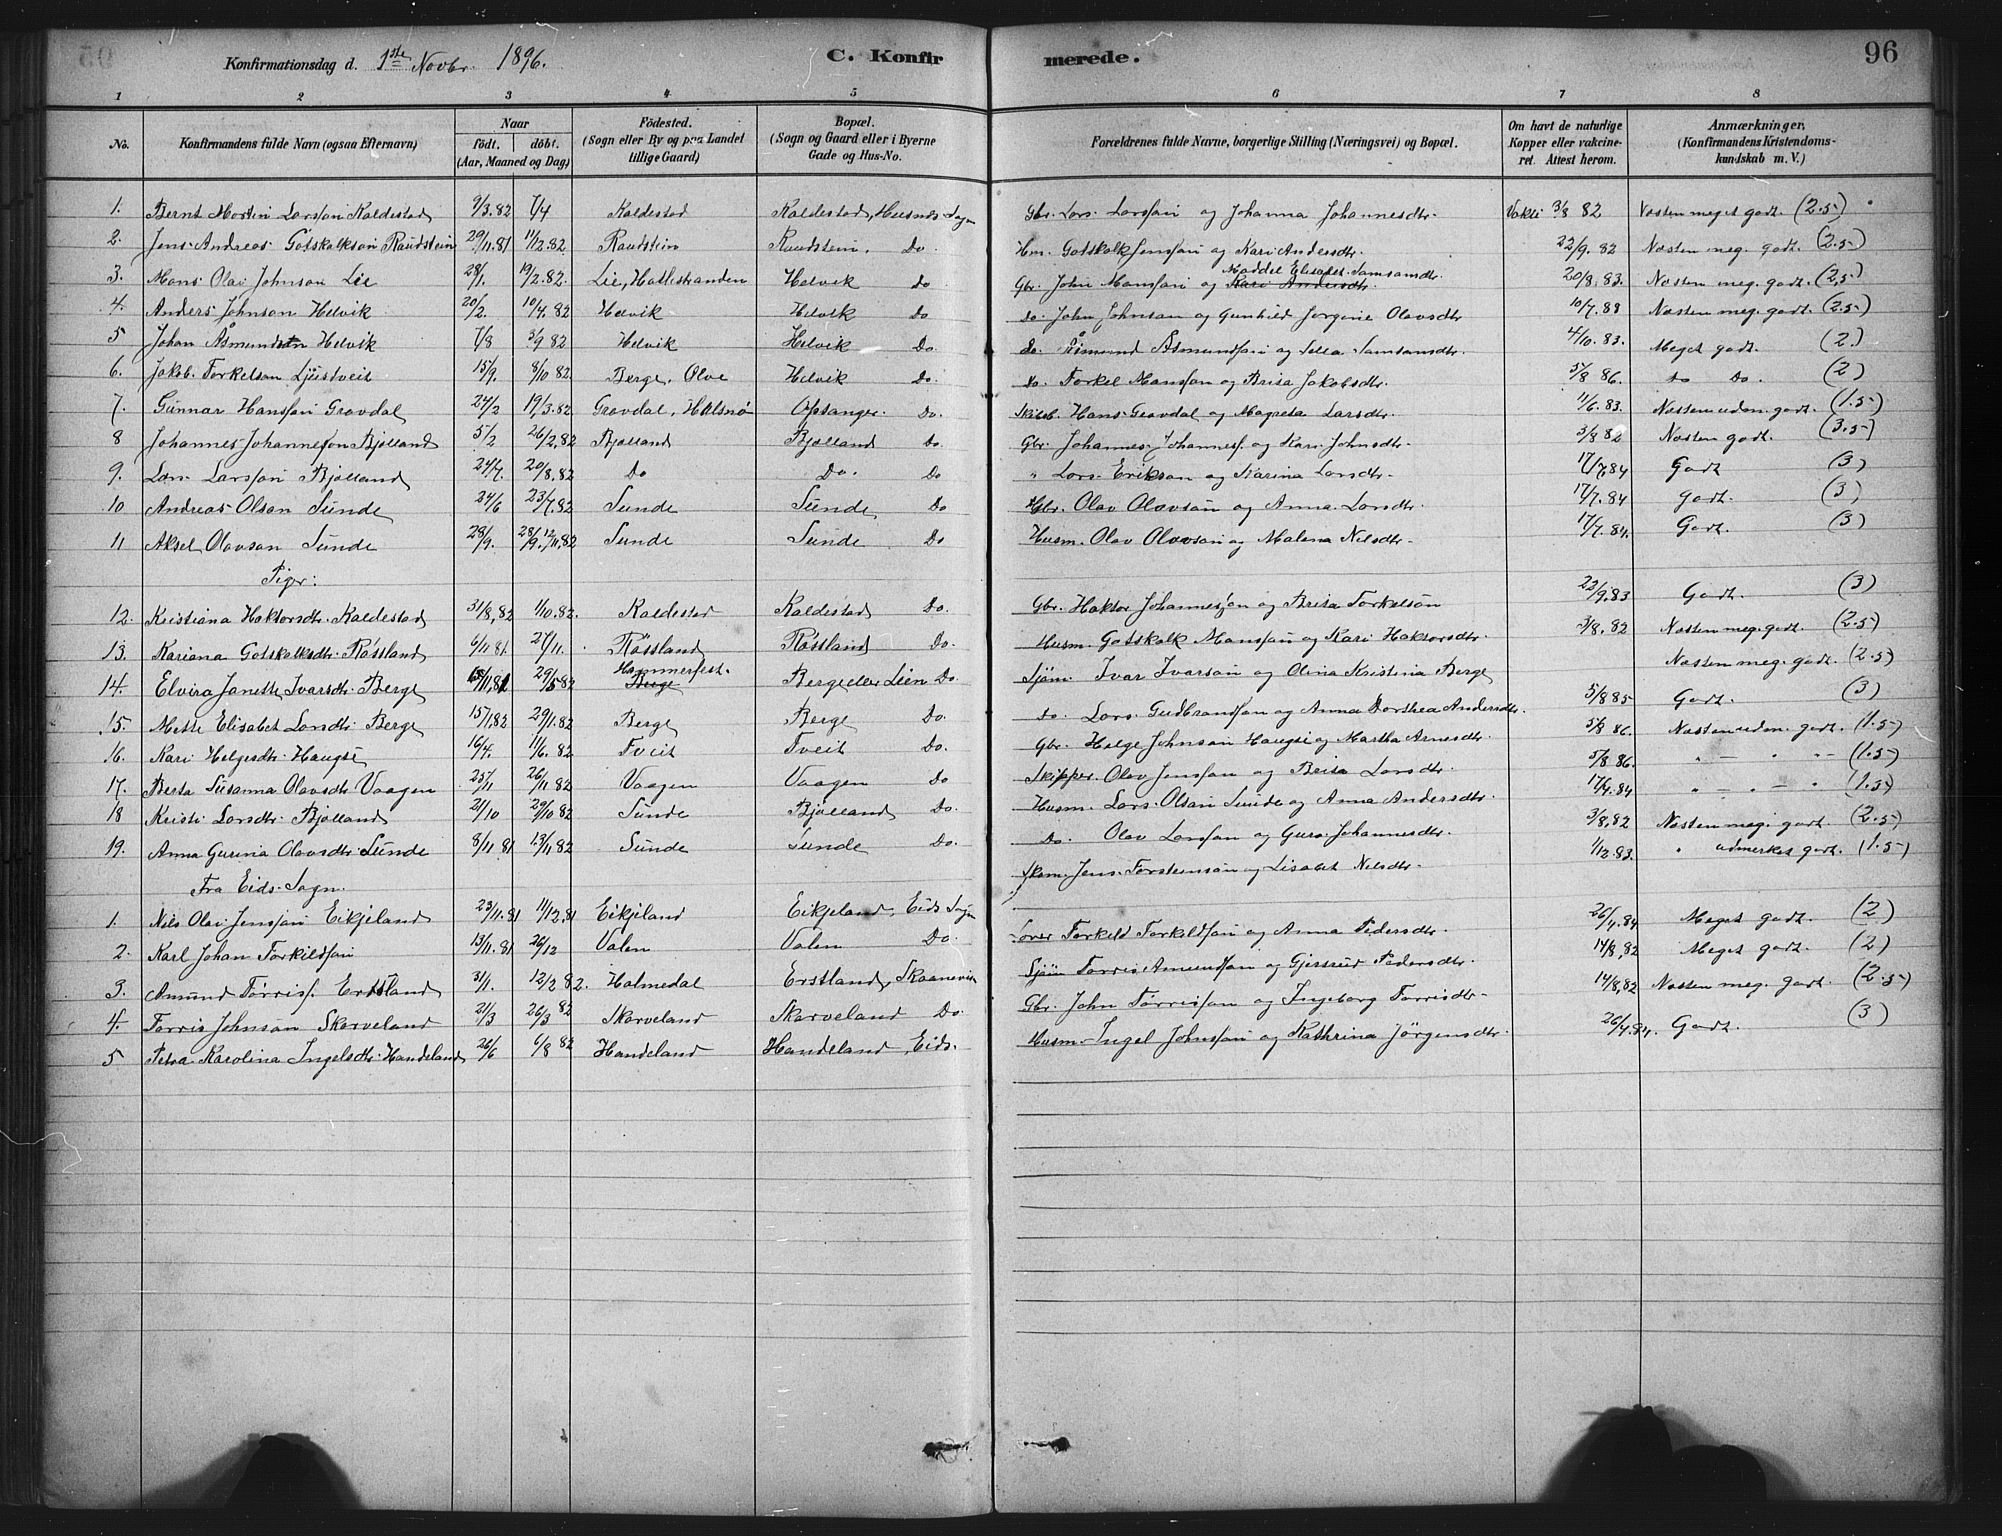 Konfirmationsdag d. 1ste Novbr. 1896.
C. Konfirmerede.
96
1 2 3 4 5 6 7 8
No. Konfirmandens fulde Navn (ogsaa Efternavn) Naar födt. döbt. (Aar, Maaned og Dag) Födested. (Sogn eller By og paa Landet tillige Gaard) Bopæl. (Sogn og Gaard eller i Byerne Gade og Hus-No. Forældrenes fulde Navne, borgerlige Stilling (Næringsvei) og Bopæl. Om havt de naturlige Kopper eller vakcineret. Attest herom. Anmærkninger. (Konfirmandens Kristendomskundskab m. V.)
1. Bernt Martin Larsson Kaldestad 9/3.82 7/4 Kaldestad Kaldestad, Husnes Sogn Gbr. Lars Larsson og Johanna Johannesdtr. Vakci 3/8 82 Næsten meget godt. (2.5)
2. Jens Andreas Gotskalkson Raudstein 29/11.81 11/12.82 Raudstein Raudstein. Do Hm. Gotskalk Jensson og Kari Andersdtr. 22/9. 82 Næsten meg. godt. (2.5)
3. Mons Olai Johnson Lie 28/1. 19/2.82. Lie, Hatlestranden Helvik Do Gbr. John Monsson og Kari Andersdtr. Maddel Elisabet Samsonsdtr. 20/8.83. Næsten meg. godt. (2.5)
4. Anders Johnson Helvik 20/2. 10/4.82 Helvik Helvik Do Do. John Johnson og Gunhild Jorgine Olavsdtr 10/7.88 Næsten meg. godt. (2.5)
5 Johan Åsmundson Helvik 7/8 3/9 82 Helvik Helvik Do Do. Åsmund Åsmundson og Silla Samsonsdtr. 4/10.83. Meget godt. (2.)
6. Jakob Torkelson Ljustveit 15/9. 8/10 82. Berge, Olve Helvik Do. Do. Torkel Monsson og Brita Jakobsdtr. 5/8 86. Do Do. (2)
7. Gunnar Hansson Gravdal 24/2 19/3.82 Gravdal, Halsnø Opsanger. Do. Skibsb. Hans Gravdal og Magreta Larsdtr. 11/6.83. Næsten udm. godt. (1.5)
8 Johannes Johannesson Bjølland 5/2 26/2.82 Bjølland Bjølland Do. Gbr. Johannes Johannesf. og Kari Johnsdtr. 3/8 82 Næsten godt. (3.5)
9. Lars Larsson Bjølland 24/7. 20/8.82 Do Do. Do " Lars Erikson og Karina Larsdtr. 17/7.84 Godt (3)
10 Andreas Olson Sunde 24/6 23/7.82 Sunde Sunde Do Gbr. Olav Olavson og Anna Larsdtr. 17/7.84 godt. (3)
11 Aksel Olavson Sunde 28/9. 28/9. 12/11.82 Sunde Sunde Do Husm. Olav Olavson og Malena Nilsdtr. 17/7.84. Godt. (3)
Piger:
12. Kristiana Haktorsdtr. Kaldestad 31/8.82 1/10.82. Kaldestad Kaldestad Do. Gbr. Haktor Johannesson og Brita Torkelson 22/9.83 Godt. (3)
13. Kariana Gotskalksdtr. Røssland 6/11 81. 27/11. Røssland Røssland Do. Husm. Gotskalk Monsson og Kari Haktorsdtr. 3/8.82 Næsten meg. godt. (2.5)
14. Elvira Janette Ivarsdtr. Berge 29/5 82 Hammerfest. Berge Berge eller Lien Do Sjöm. Ivar Ivarson og Olina Kristina Berge Næsten meg. godt. (2.5)
15. Mette Elisabet Larsdtr. Berge 15/1.82 29/1.82 Berge Berge Do. Do. Lars Gudbrandson og Anna Dorthea Andersdtr. 5/8 85 Godt. (3)
16. Kari Helgesdtr. Haugse 16/4. 11/6. 82 Tveit Tveit Do. Gbr. Helge Johnson Haugse og Martha Arnesdtr. 5/8 86. Næsten udm. godt. (1.5)
17. Berta Susanna Olavsdtr. Vaagen 25/11 26/11 82 Vaagen Vaagen Do Skipper. Olav Jensson og Brita Larsdtr. 5/8 86. " – " " (1.5)
18 Kristi Larsdtr. Bjølland 21/10 29/10 82 Sunde Bjølland Do. Husm. Lars Olson Sunde og Anna Andersdtr. 17/4.84 " – " – " (1.5)
19. Anna Gurina Olavsdtr. Sunde 8/11 81 13/11 82 Sunde Sunde Do. Do. Olav Larsson og Guro Johannesdtr. 3/8.82 Næsten meg. godt. (2.5)
Skom. Jens Torsteinson og Lisabet Nilsdtr. 1/12 83. " udmerket godt. (1.5)
Fra Eids Sogn.
1. Nils Olai Jensson Eikjeland 23/11.81 11/12.81 Eikjeland Eikjeland, Eids Sogn Torkeld Torkeldson og Anna Pedersdtr. 26/4.84 Meget godt. (2)
2. Karl Johan Torkildson 13/11.81 26/12 Valen Valen Do. Sjöm Torris Amundson og Gjertrud Pedersdtr. 14/8.82 Meget godt. (2)
3. Amund Torrisf. Erstland 31/1. 12/2 82. Holmedal Erstland, Skaanevik Gbr. John Torrisson og Ingeborg Torrisdtr. 14/8.82 Næsten meg. godt. (2.5)
4. Torris Johnson Skarveland 21/3 26/3 82 Skarveland Skarveland Do. Husm. Ingel Johnson og Kathrina Jörgensdtr. 26/4.84. Godt. (3)
5 Petra Karolina Ingelsdtr. Handeland 26/6 6/8 82 Handeland Handeland, Eids.